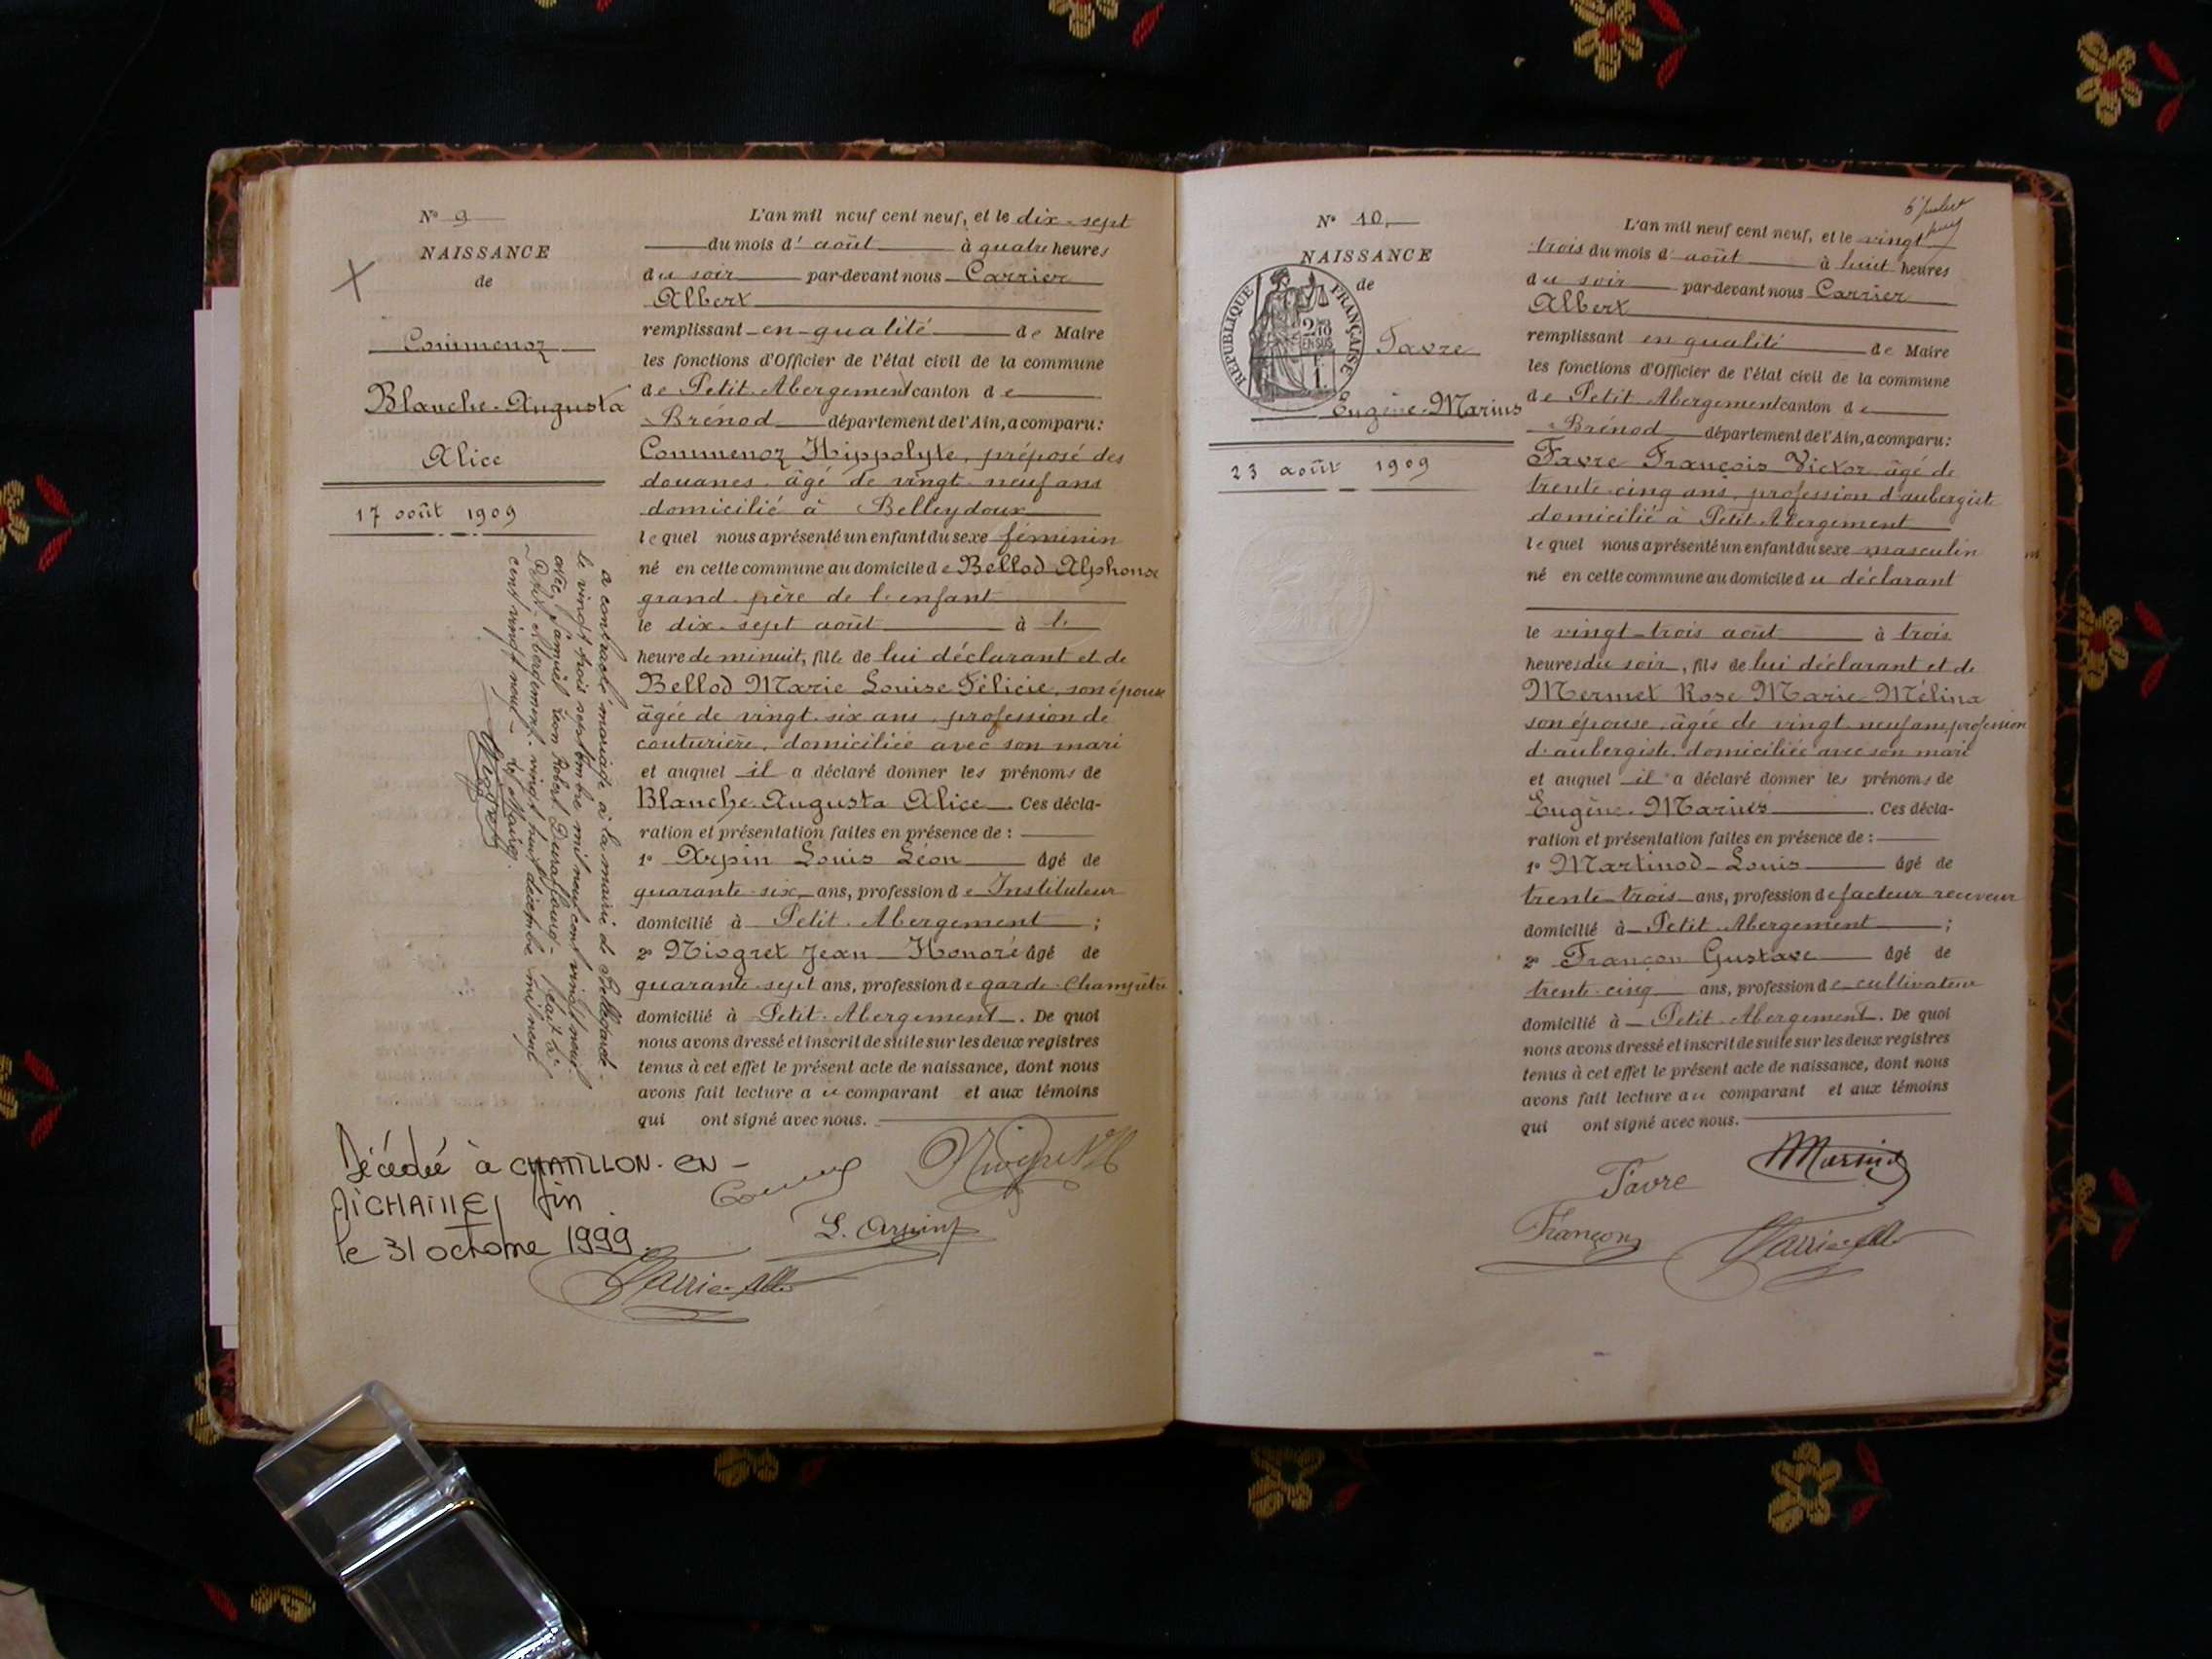 N° 9
NAISSANCE
de
Commenoz
Blanche-Augusta
Alice
17 août 1909
a contracté mariage à la mairie de Bellegarde
le vingt trois septembre mil neuf cent vingt neuf
avec Samuel Léon Robert Duraffourd. Fait à
Petit-Abergement. vingt huit décembre mil neuf
cent vingt neuf. Le Maire.
L'an mil neuf cent neuf, et le dix-sept
du mois d'août à quatre heures
du soir par-devant nous Carrier
Albert
remplissant en qualité de Maire
les fonctions d'Officier de l'état civil de la commune
de Petit-Abergement canton de
Brénod département de l'Ain, a comparu:
Commenoz Hippolyte, préposé des
douanes, âgé de vingt-neuf ans
domicilié à Belleydoux
lequel nous a présenté un enfant du sexe féminin
né en cette commune au domicile de Bellod Alphonse
grand-père de l'enfant
le dix-sept août à l'
heure de minuit, fille de lui déclarant et de
Bellod Marie Louise Félicie, son épouse
âgée de vingt-six ans, profession de
couturière, domiciliée avec son mari
et auquel il a déclaré donner les prénoms de
Blanche-Augusta Alice. Ces décla-
ration et présentation faites en présence de :
1° Arpin Louis Léon âgé de
quarante-six ans, profession de Instituteur
domicilié à Petit-Abergement ;
2° Niogret Jean-Honoré âgé de
quarante-sept ans, profession de garde-Champêtre
domicilié à Petit-Abergement. De quoi
nous avons dressé et inscrit de suite sur les deux registres
tenus à cet effet le présent acte de naissance, dont nous
avons fait lecture au comparant et aux témoins
qui ont signé avec nous.
Décédée à CHATILLON-EN-
MICHAILLE, Ain
le 31 octobre 1999.
L. Arpin
N° 10
NAISSANCE
de
REPUBLIQUE FRANÇAISE
2/10 EN SUS
1 F.
Favre
Eugène-Marius
23 août 1909
L'an mil neuf cent neuf, et le vingt
trois du mois d'août à huit heures
du soir par-devant nous Carrier
Albert
remplissant en qualité de Maire
les fonctions d'Officier de l'état civil de la commune
de Petit-Abergement canton de
Brénod département de l'Ain, a comparu:
Favre François Victor âgé de
trente-cinq ans, profession d'aubergiste
domicilié à Petit-Abergement
lequel nous a présenté un enfant du sexe masculin
né en cette commune au domicile du déclarant
le vingt-trois août à trois
heures du soir, fils de lui déclarant et de
Mermet Rose Marie Mélina
son épouse, âgée de vingt neuf ans, profession
d'aubergiste, domiciliée avec son mari
et auquel il a déclaré donner les prénoms de
Eugène-Marius. Ces décla-
ration et présentation faites en présence de :
1° Martinod Louis âgé de
trente-trois ans, profession de facteur receveur
domicilié à Petit-Abergement ;
2° Françon Gustave âgé de
trente-cinq ans, profession de cultivateur
domicilié à Petit-Abergement. De quoi
nous avons dressé et inscrit de suite sur les deux registres
tenus à cet effet le présent acte de naissance, dont nous
avons fait lecture au comparant et aux témoins
qui ont signé avec nous.
Favre
Françon